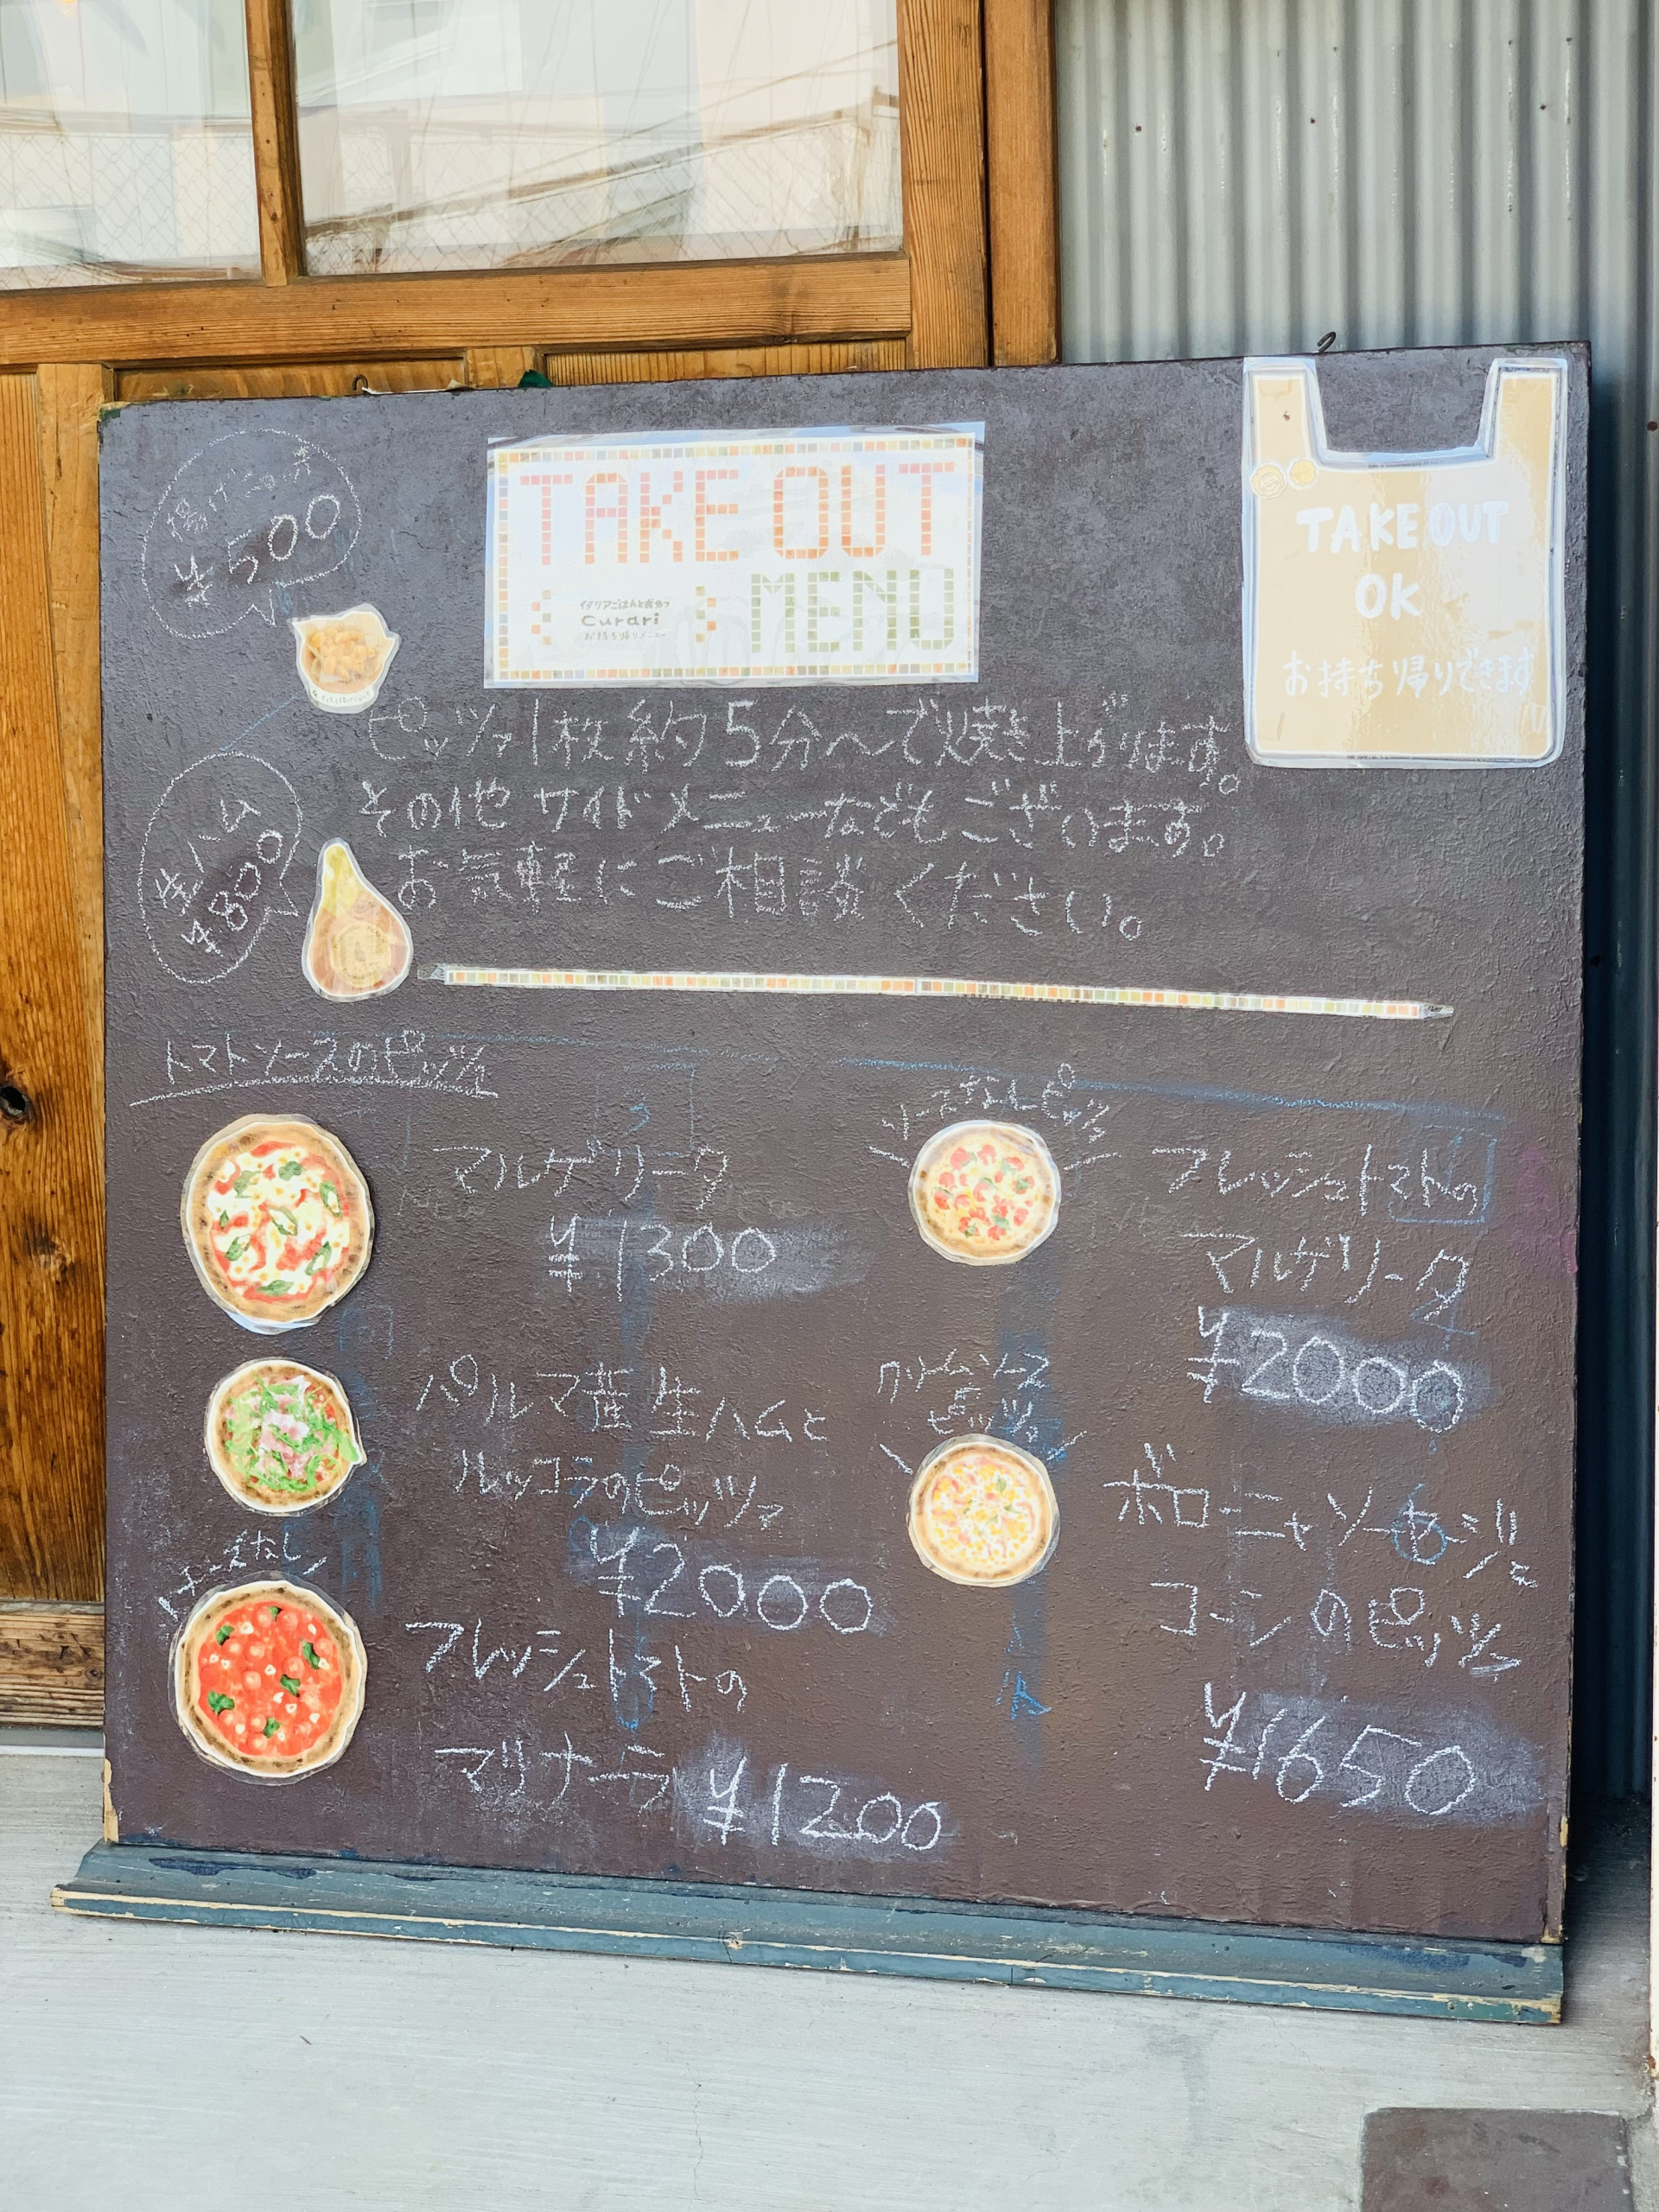 揚げニョッキ
¥500
TAKE OUT
MENU
イタリアごはんとおかつ
Curari
お持ち帰りメニュー
TAKE OUT
OK
お持ち帰りできます
ピッツァ1枚約5分〜で焼き上がります。
その他サイドメニューなどもございます。
お気軽にご相談ください。
生ハム
¥800
トマトソースのピッツァ
マルゲリータ
¥1300
パルマ産生ハムと
ルッコラのピッツァ
¥2000
チーズなし
フレッシュトマトの
マリナーラ ¥1200
ソースなしピッツァ
フレッシュトマトの
マルゲリータ
¥2000
クリームソース
ピッツァ
ボローニャソーセージと
コーンのピッツァ
¥1650